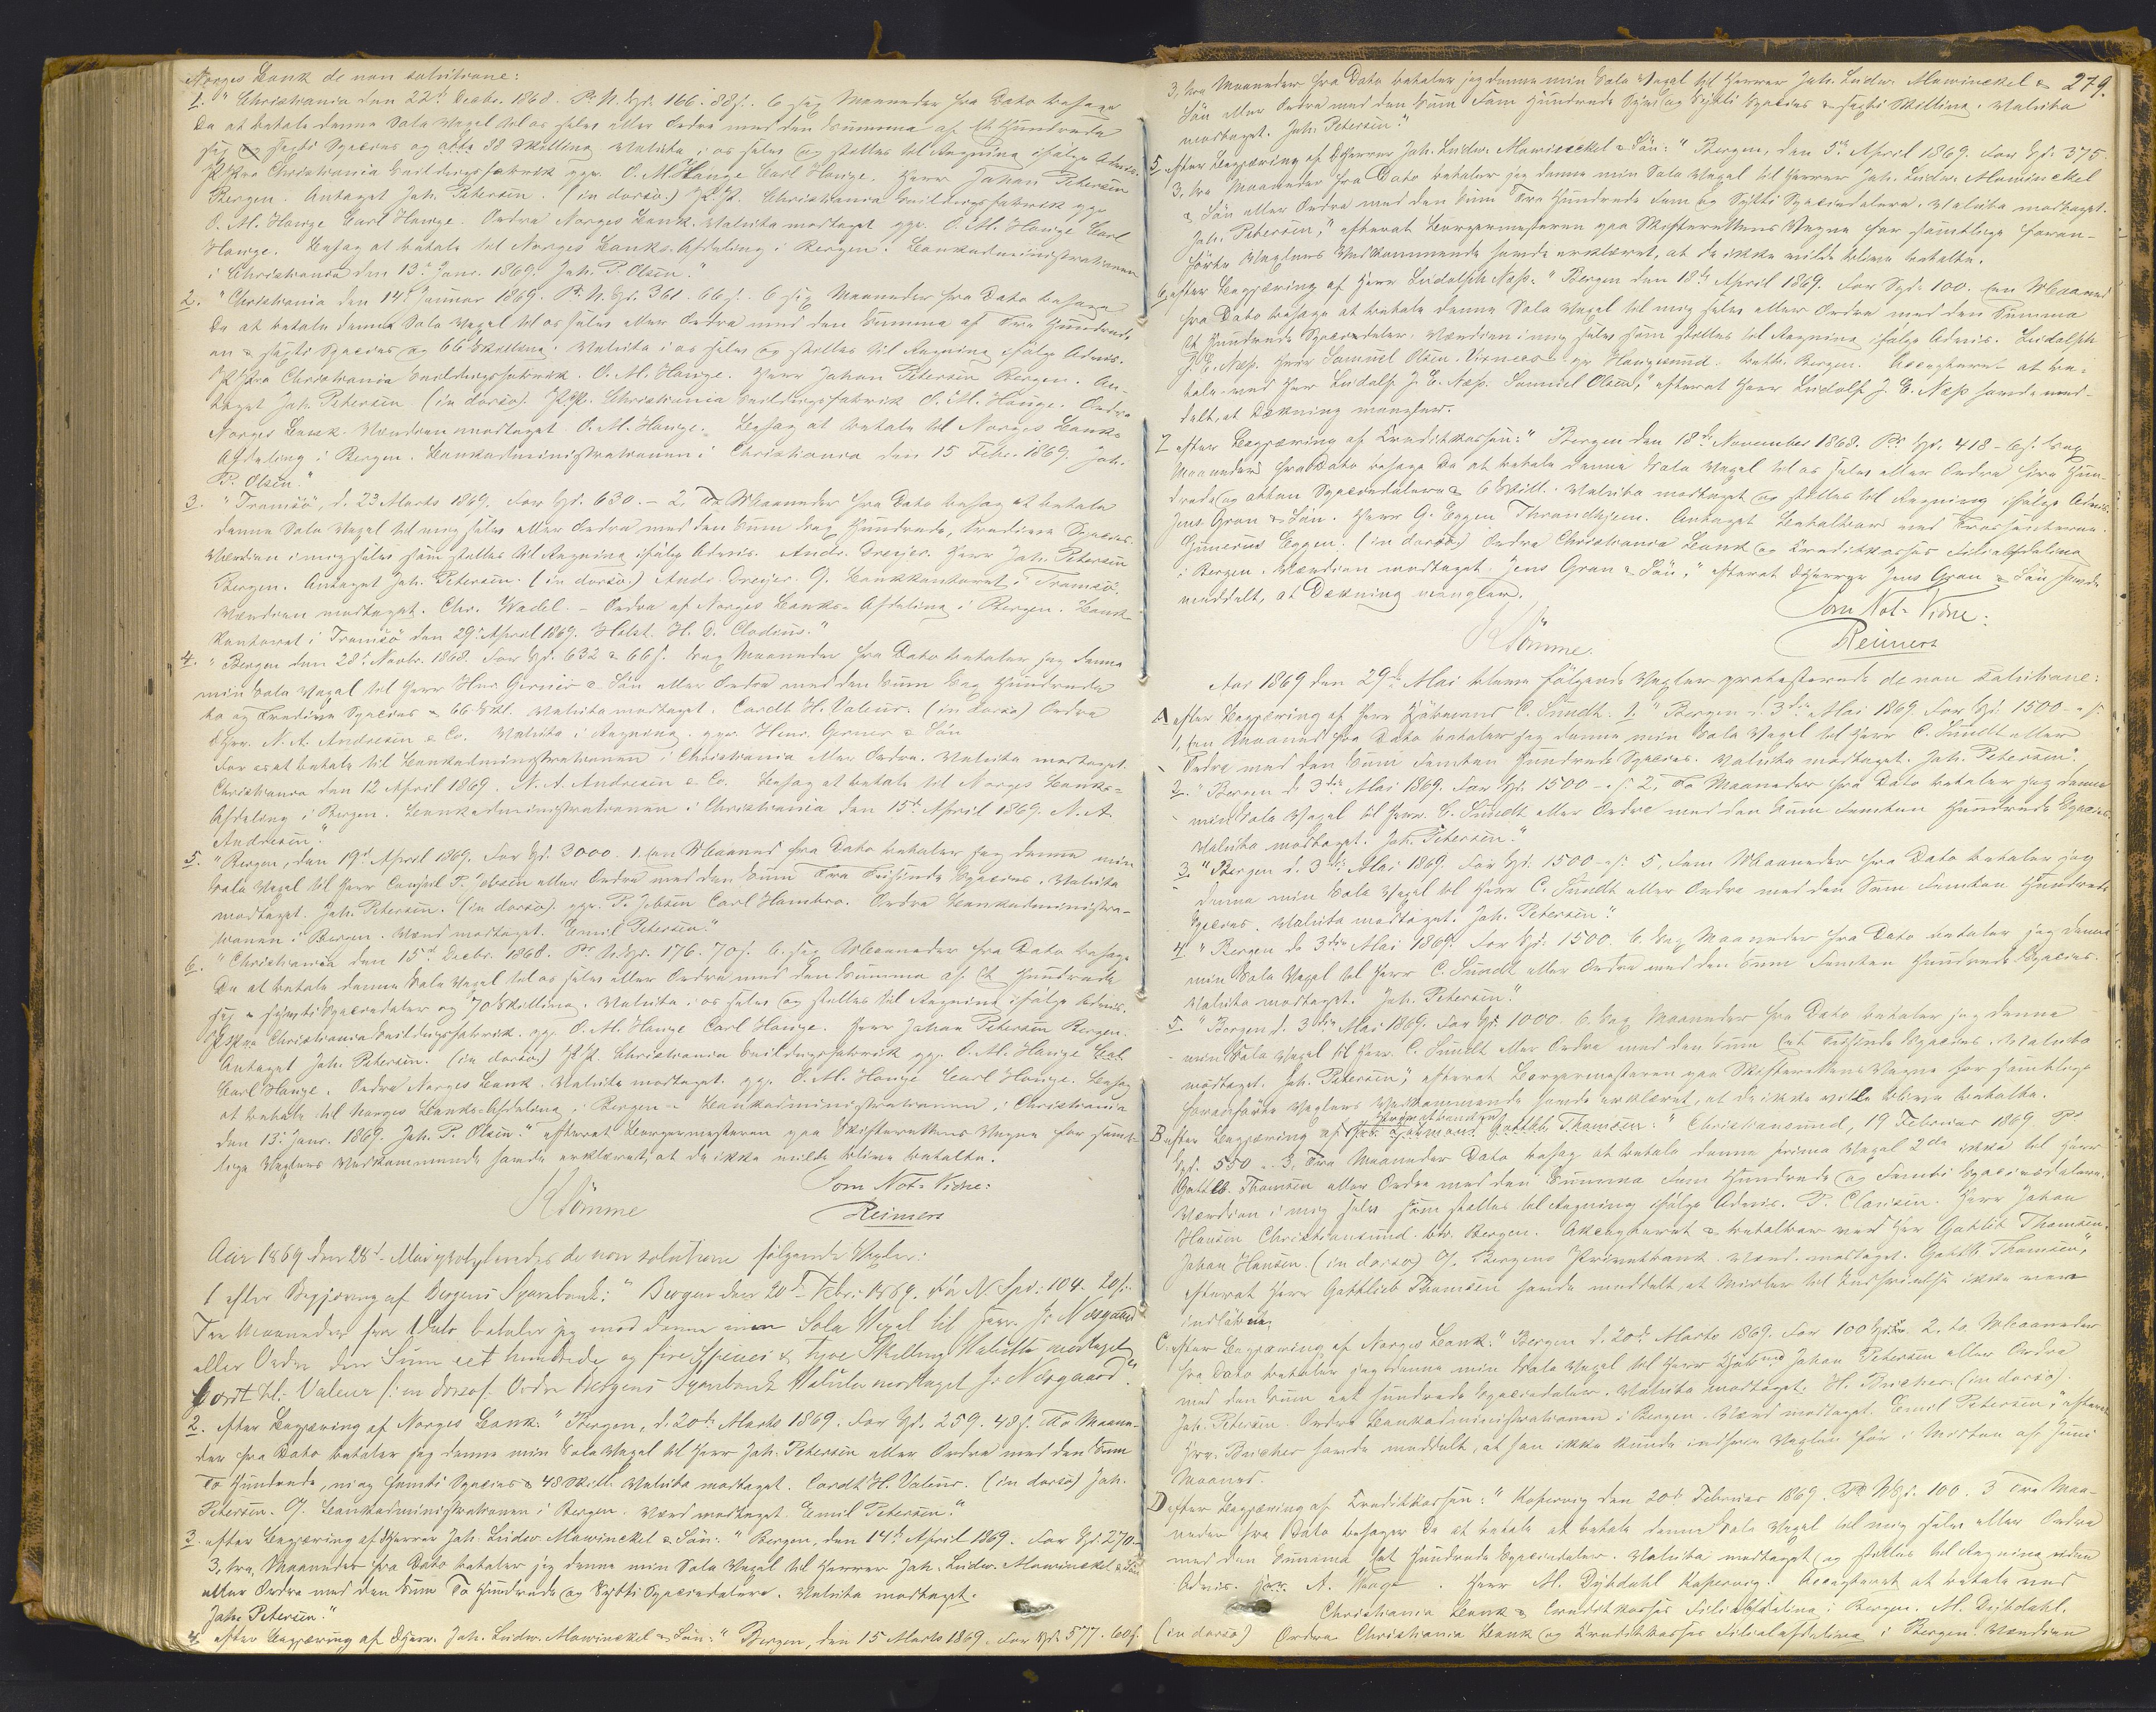 Norges Bank de non solutione:
1. "Christiania den 22d Decbr. 1868. Pr. N. Spd. 166. 88ſ. 6 sex Maaneder fra Dato behage
De at betale denne Sola Vexel til os selv eller Ordre med den Summa af Et Hundrede
sex og sexti Species og otte 88 Skilling Valuta i os selv og stilles til Regning ifølge Advis.
pr. Pro Christiania Seildugsfabrik ppr. O. M. Hauge Carl Hauge. Herr Johan Petersen
Bergen. Antaget Joh. Petersen. (in dorso) P.P. Christiania Seildugsfabrik ppr.
O. M. Hauge Carl Hauge. Ordre Norges Bank. Valuta modtaget ppr. O. M. Hauge Carl
Hauge. Behag at betale til Norges Banks Afdeling i Bergen. Bankadministrationen
i Christiania den 13d Janr. 1869. Joh. P. Olsen."
2. "Christiania den 14d Januar 1869. Pr. N. Spd. 361. 66ſ. 6 sex Maaneder fra Dato behage
De at betale denne Sola Vexel til os selv eller Ordre med den Summa af Tre Hundrede
en & sexti Species og 66 Skilling. Valuta i os selv og stilles til Regning ifølge Advis.
pr. Pro Christiania Seildugsfabrik. O. M. Hauge. Herr Johan Petersen Bergen. An-
taget Joh. Petersen (in dorso). P.P. Christiania Seildugsfabrik O. M. Hauge. Ordre
Norges Bank. Værdien modtaget O. M. Hauge. Behag at betale til Norges Banks
Afdeling i Bergen. Bankadministrationen i Christiania den 15 Febr. 1869. Joh.
P. Olsen."
3. "Tromsö, d. 23 Marts 1869. For Spd. 630. - 2, To Maaneder fra Dato behag at betale
denne Sola Vexel til mig selv eller Ordre med den Sum Sex Hundrede, Tredive Species.
Værdien i mig selv som stilles til Regning ifølge Advis. Andr. Dreyer. Herr Joh. Petersen
Bergen. Antaget Joh. Petersen. (in dorso.) Andr. Dreyer. Bankkontoret i Tromsö.
Værdien modtaget. Chr. Wadel. - Ordre af Norges Banks Afdeling i Bergen. Bank-
kontoret i Tromsö den 29d April 1869. Holst. H. D. Clodius."
4. "Bergen den 28d Novbr. 1868. For Spd. 632 & 66ſ. Sex Maaneder fra Dato betaler jeg denne
min Sola Vexel til Herr Henr Gerner & Sön eller Ordre med den Sum Sex Hundrede
to og Tredive Species & 66 Skl. Valuta modtaget. Cordt H. Valeur. (in dorso) Ordre
Hrr. N. A. Andresen & Co. Valuta i Regning. ppr. Henr. Gerner & Sön
For os at betale til Bankadministrationen i Christiania eller Ordre. Valuta modtaget.
Christiania den 12 April 1869. N. A. Andresen & Co. Behag at betale til Norges Banks-
Afdeling i Bergen. Bankadministrationen i Christiania den 15d April 1869. N. A.
Andresen."
5. "Bergen, den 19d April 1869. For Spd. 3000. 1. En Maaned fra Dato betaler jeg denne min
Sola Vexel til Herr Consul P. Jebsen eller Ordre med den Sum Tre Tusinde Species. Valuta
modtaget. Joh. Petersen. (in dorso). ppr. P. Jebsen Carl Hambro. Ordre Bankadministra-
tionen i Bergen. Værd modtaget. Emil Petersen."
6. "Christiania den 15d Decbr. 1868. Pr. N. Spd. 176. 70ſ. 6. sex Maaneder fra Dato behage
De at betale denne Sola Vexel til os selv eller Ordre med den Summa af Et Hundrede
sex & sytti Speciedaler og 70 Skilling. Valuta i os selv og stilles til Regning ifølge Advis.
pr. Pro Christiania Seildugsfabrik. ppr. O. M. Hauge Carl Hauge. Herr Johan Petersen Bergen.
Antaget Joh. Petersen. (in dorso) P.P. Christiania Seildugsfabrik ppr. O. M. Hauge
Carl Hauge. Ordre Norges Bank. Valuta modtaget. ppr. O. M. Hauge Carl Hauge. Behag
at betale til Norges Banks Afdeling i Bergen - Bankadministrationen i Christiania
den 13d Janr. 1869. Joh. P. Olsen." efterat Borgermesteren paa Skifterettens Vegne for samt-
lige Vexlers Vedkommende havde erklæret, at de ikke vilde blive betalte.
Som Not. Vidne:
Stömme Reimers
Aar 1869 den 28d Mai protesteredes de non solutione følgende Vexler:
1 efter Begjæring af Bergens Sparebank: "Bergen den 20d Febr. 1869. For N. Spd. 104. 20ſ.
Tre Maaneder fra Dato betaler jeg mod denne min Sola Vexel til Herr J. Nesgaard
eller Ordre den Sum eet hundrede og fire Species & tyve Skilling Valutta modtaget
Cordt H. Valeur (in dorso). Ordre Bergens Sparebank Valuta modtaget J. Nesgaard."
2. efter Begjæring af Norges Bank: "Bergen, d. 20d Marts 1869. For Spd. 259. 48ſ. To Maane-
der fra Dato betaler jeg denne min Sola Vexel til Herr Joh. Petersen eller Ordre med den Sum
To Hundrede, ni og femti Species & 48 Skill. Valuta modtaget. Cordt H. Valeur. (in dorso) Joh.
Petersen. Bankadministrationen i Bergen. Værd modtaget. Emil Petersen."
3. efter Begjæring af Herrer Joh. Ludw. Mowinckel & Sön: "Bergen, den 14d April 1869. For Spd. 270-
3, tre, Maaneder fra Dato betaler jeg denne min Sola Vexel til Herrer Joh. Ludw. Mowinckel & Sön
eller Ordre med den Sum To Hundrede og Sytti Speciedalere. Valuta modtaget.
Joh. Petersen."
4 efter Begjæring af Herr. Joh. Ludw. Mowinckel & Sön: "Bergen, den 15 Marts 1869. For Spd. 577. 60ſ.
279.
3, tre Maaneder fra Dato betaler jeg denne min Sola Vexel til Herrer Joh. Ludw. Mowinckel &
Sön eller Ordre med den Sum Fem Hundrede Syv og Sytti Species & sexti Skilling. Valuta
modtaget. Joh. Petersen."
5 efter Begjæring af Herrer Joh. Ludw. Mowinckel & Sön: "Bergen, den 5d April 1869. For Spd. 375.
3, tre Maaneder fra Dato betaler jeg denne min Sola Vexel til Herrer Joh. Ludw. Mowinckel
& Sön eller Ordre med den Sum Tre Hundrede Fem og Sytti Speciedalere. Valuta modtaget.
Joh. Petersen," efterat Borgermesteren paa Skifterettens Vegne for samtlige foran-
førte Vexlers Vedkommende havde erklæret, at de ikke vilde blive betalte.
6, efter Begjæring af Herr Ludolph Næss: "Bergen den 18d April 1869. For Spd. 100. Een Maaned
fra Dato behage at betale denne Sola Vexel til mig selv eller Ordre med den Summa
Et Hundrede Speciedaler. Værdien i mig selv som stilles til Regning ifølge Advis. Ludolph
J. E. Næss. Herr Samuel Olsen. Haugesund. betb. Bergen. Accepteret at be-
tale ved Herr Ludolf J. E. Næss. Samuel Olsen," efterat Herr Ludolf J. E. Næss havde med-
delt, at Dækning mangler.
7 efter Begjæring af Creditkassen: "Bergen den 18d November 1868. Pr. Spd. 418 - 6ſ. Sex
Maaneder fra Dato behage De at betale denne Sola Vexel til os selv eller Ordre fire Hun-
drede og atten Speciedalere & 6 Skill. Valuta modtaget og stilles til Regning ifølge Advis.
Jens Gran & Sön. Herr G. Eggen Throndhjem. Antaget
Gunerius Eggen. (in dorso) Ordre Christiania Bank og Kreditkasses Filialafdeling
i Bergen. Værdien modtaget. Jens Gran & Sön," efterat Herrer Jens Gran & Sön havde
meddelt, at Dækning mangler.
Som Not. Vidne:
Stömme. Reimers
Aar 1869 den 29d Mai bleve følgende Vexler protesterede de non solutione:
A efter Begjæring af Herr Kjøbmand C. Sundt. 1. "Bergen d. 3die Mai 1869. For Spd. 1500 - ſ.
1, Een Maaned fra Dato betaler jeg denne min Sola Vexel til Herr C. Sundt eller
Ordre med den Sum Femten Hundrede Species. Valuta modtaget. Joh. Petersen."
2. "Bergen d. 3die Mai 1869. For Spd. 1500 - ſ. 2, To Maaneder fra Dato betaler jeg denne
min Sola Vexel til Herr C. Sundt eller Ordre med den Sum Femten Hundrede Species.
Valuta modtaget. Joh. Petersen."
3. "Bergen d. 3die Mai 1869. For Spd. 1500 - ſ. 5 Fem Maaneder fra Dato betaler jeg
denne min Sola Vexel til Herr C. Sundt eller Ordre med den Sum Femten Hundrede
Species. Valuta modtaget. Joh. Petersen."
4. "Bergen d. 3die Mai 1869. For Spd. 1500. 6. Sex Maaneder fra Dato betaler jeg denne
min Sola Vexel til Herr C. Sundt eller Ordre med den Sum Femten Hundrede Species.
Valuta modtaget. Joh. Petersen."
5. "Bergen d. 3die Mai 1869. For Spd. 1000. 6. Sex Maaneder fra Dato betaler jeg denne
min Sola Vexel til Herr. C. Sundt eller Ordre med den Sum Eet Tusinde Species. Valuta
modtaget. Joh. Petersen," efterat Borgermesteren paa Skifterettens Vegne for samtlige
foranførte Vexlers Vedkommende havde erklæret, at de ikke ville blive betalte.
Privatbanken
B efter Begjæring af Gottlb. Thomsen: "Christiansund, 19 Februar 1869. Pr.
Spd. 550 - 3, Tre Maaneder Dato behag at betale denne prima Vexel 2da ikke til Herr
Gottlb. Thomsen eller Ordre med den Summa Fem Hundrede og Femti Speciesdalere.
Værdien i mig selv som stilles til Regning ifølge Advis. P. Clausen. Herr Johan
Hansen Christiansund. btb. Bergen. Accepteret & betalbar ved Herr Gottlib Thomsen.
Johan Hansen. (in dorso) Bergens Privatbank. Værd. modtaget. Gottlb. Thomsen",
efterat Herr Gottlieb Thomsen havde meddelt, at Midler til Indfrielse ikke vare
indløbne.
C. efter Begjæring af Norges Bank: "Bergen d. 20d Marts 1869. For 100 Spd. 2. to Maaneder
fra Dato betaler jeg denne min Sola Vexel til Herr Kjøbmd Johan Petersen eller Ordre
med den Sum eet hundrede Speciedaler. Valuta modtaget. H. Bucher. (in dorso).
Joh. Petersen. Ordre Bankadministrationen i Bergen. Værd modtaget. Emil Petersen", efterat
Hrr. Bucher havde meddelt, at han ikke kunde indfrie Vexlen før i Midten af Juni
Maaned.
D efter Begjæring af Creditkassen: "Kopervig den 20d Februar 1869. Pr. NSpd. 100. 3 Tre Maa-
neder fra Dato behager De at betale at betale denne Sola Vexel til mig selv eller Ordre
med den Summa Et Hundrede Speciedaler. Valuta modtaget og stilles til Regning uden
Advis. A. Waage. Herr M. Dybdahl Kopervig. Accepteret at betale ved
Christiania Bank & Creditkasses Filialafdeling i Bergen. M. Dybdahl.
(in dorso) Ordre Christiania Bank og Kreditkasses Filialafdeling i Bergen. Værdien